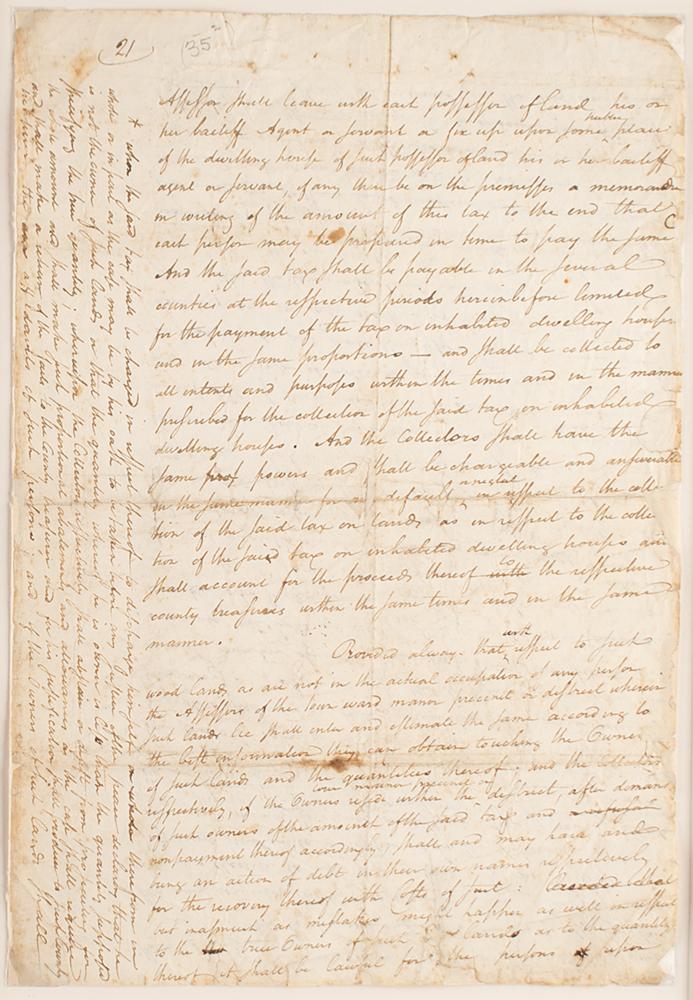 21
35
Assessor shall leave with each possessor of land his or
her bailiff Agent or servant or fix up upon some public place
of the dwelling house of such possessor of land his or her bailiff
agent or servant, if any there be on the premisses a memorandum
in writing of the amount of this tax to the end that
each person may be prepared in time to pay the same
And the said tax shall be payable in the several
counties at the respective periods hereinbefore limited
for the payment of the tax on inhabited dwelling houses
and in the same proportions — and shall be collected to
all intents and purposes within the times and in the manner
prescribed for the collection of the said tax on inhabited
dwelling houses. And the Collectors shall have the
same powers and shall be chargeable and answerable
in the same manner for default or neglect in respect to the collec
tion of the said tax on lands as in respect to the collec
tion of the said tax on inhabited dwelling houses and
shall account for the proceeds thereof to with the respective
county treasurers within the same times and in the same
manner.
Provided always that with respect to such
wood lands as are not in the actual occupation of any person
the Assessors of the town ward manor precinct or district wherein
such lands lie shall enter and estimate the same according to
the best information they can obtain touching the Owner
of such lands and the quantities thereof; and the Collectors
respectively, if the Owners reside within the town manor precinct district, after demand
of such owners of the amount of the said tax and a refusal
nonpayment thereof accordingly shall and may have and
bring an action of debt in their own names respectively
for the recovery thereof with Costs of suit:
but inasmuch as mistakes might happen as well in respect
to the true Owners of such lands as to the quantity
thereof it shall be lawful for the persons upon
* whom the said tax shall be charged in respect thereof to discharge himself therefrom in
whole or in part as the case may be by his oath to be taken before any Justice of the peace declaring that he
is not the owner of such lands or that the quantity whereof he is owner is less than the quantity supposed
specifying the true quantity; whereupon the Collectors respectively shall
the same amount and shall make such proportional abatements and allowances as the case shall require
and shall make a return of the facts to the County treasurer and for his justification shall produce
of such persons, and of the Owners of such lands shall